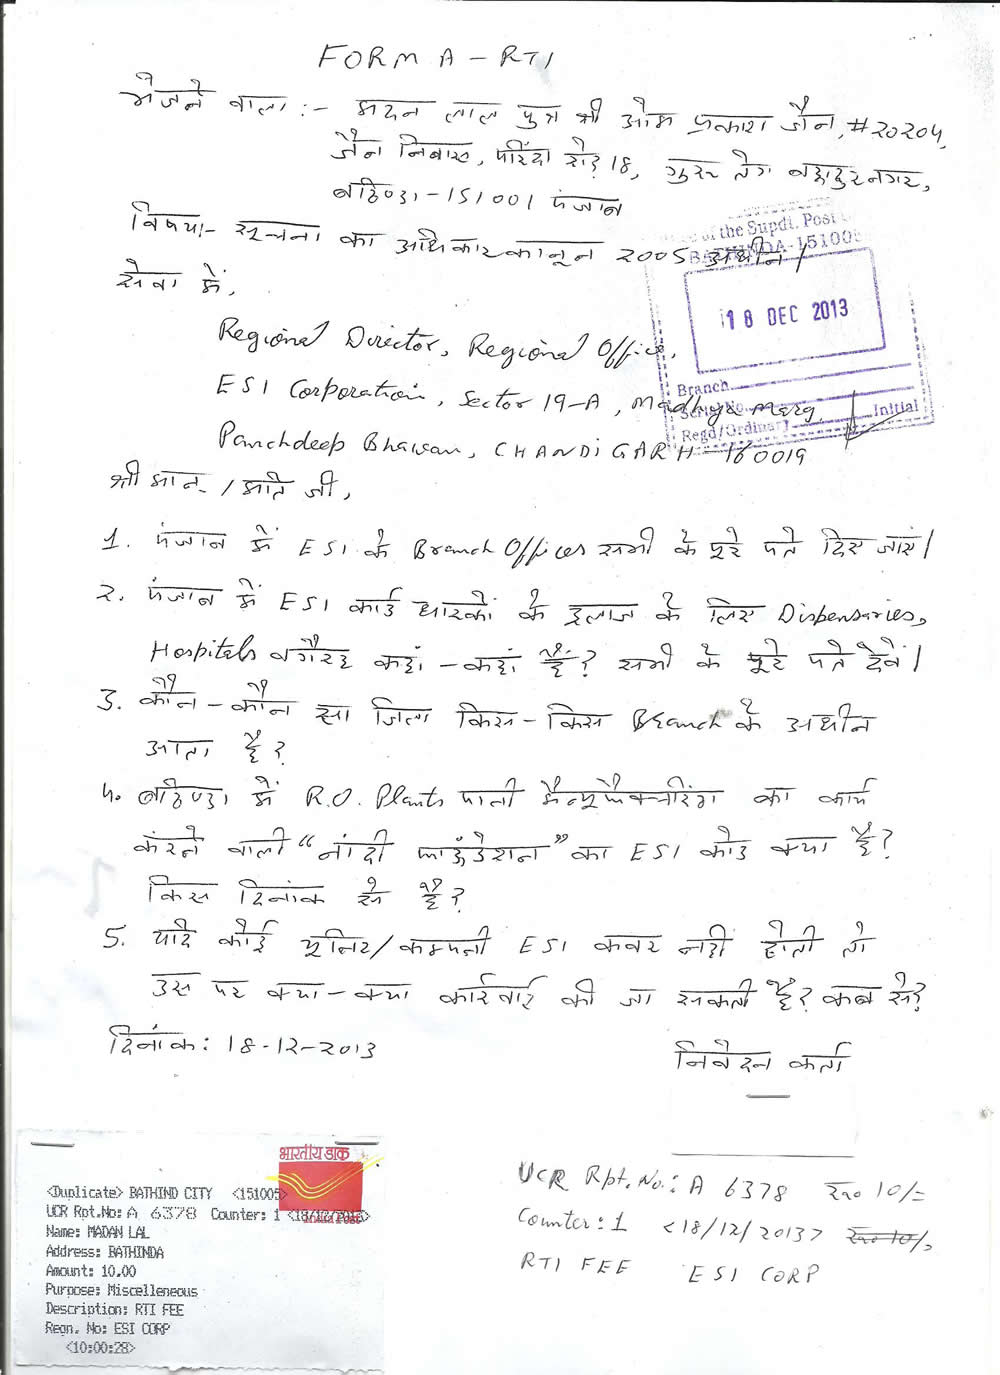 FORM A - RTI
भेजने वाला :- मदन लाल पुत्र श्री ओम प्रकाश जैन, #20204,
जैन निवास, परिंदा रोड़ 18, गुरू तेग बहादुर नगर,
बठिण्डा - 151001 पंजाब
विषय:- सूचना का अधिकार कानून 2005 अधीन।
सेवा में,
of the Supdt. Post
BATHINDA-151005
18 DEC 2013
Branch
Serial No.
Regd/Ordinary
Initial
Regional Director, Regional Office,
ESI Corporation, Sector 19-A, Madhya Marg,
Panchdeep Bhawan, CHANDIGARH - 160019
श्री मान / मति जी,
1. पंजाब में ESI के Branch Offices सभी के पूरे पते दिए जाएं।
2. पंजाब में ESI कार्ड धारकों के इलाज के लिए Dispensaries,
Hospitals वगैरह कहां - कहां हैं? सभी के पूरे पते देवें।
3. कौन - कौन सा जिला किस - किस Branch के अधीन
आता है?
4. बठिण्डा में R.O. Plants पानी मैन्यूफैक्चरिंग का कार्य
करने वाली "नांदी फाऊंडेशन" का ESI कोड क्या है?
किस दिनांक से है?
5. यदि कोई यूनिट/कम्पनी ESI कवर नहीं होती तो
उस पर क्या - क्या कार्रवाई की जा सकती है? कब से?
दिनांक: 18-12-2013
निवेदन कर्ता
भारतीय डाक
India Post
<Duplicate> BATHIND CITY <151005>
UCR Rpt.No: A 6378 Counter: 1 <18/12/2013>
Name: MADAN LAL
Address: BATHINDA
Amount: 10.00
Purpose: Miscellaneous
Description: RTI FEE
Regn. No: ESI CORP
<10:00:28>
UCR Rpt. No.: A 6378 रू० 10/=
Counter: 1 <18/12/2013> रू० 10/=
RTI FEE ESI CORP